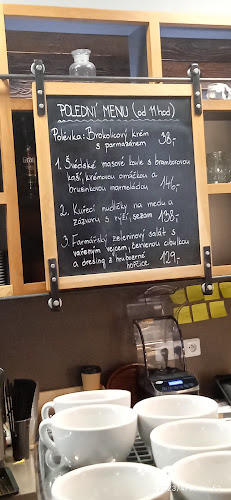 POLEDNÍ MENU (od 11 hod)
Polévka: Brokolicový krém
s parmazánem 38,-
1. Švédské masové koule s bramborovou
kaší, krémovou omáčkou a
brusinkovou marmeládou 146,-
2. Kuřecí nudličky na medu a
zázvoru s rýží, sezam 138,-
3. Farmářský zeleninový salát s
vařeným vejcem, červenou cibulkou
a dresing z hrubozrnné
hořčice 129,-